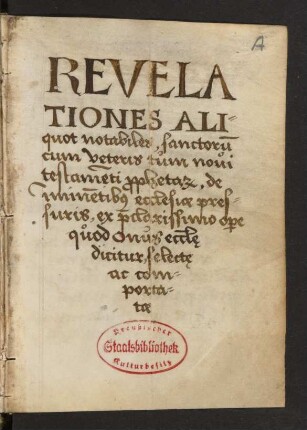 A
REVELA
TIONES ALI-
quot notabiles, sanctorū
cum veteris tum noui
testamēti ꝓphetaꝝ, de
iminētibꝰ ecclesiæ pres-
suris, ex p̄clarissimo ope
quod Onus eccłę
dicitur, selectę
ac com-
porta-
tæ
Preußischer
Staatsbibliothek
Kulturbesitz